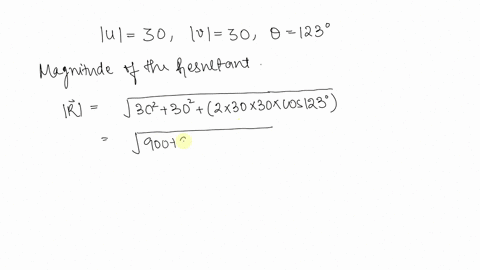 |u| = 30, |v| = 30, θ = 123°
Magnitude of the Resultant.
|R⃗| = √(30² + 30² + (2×30×30×cos123°))
= √(900+